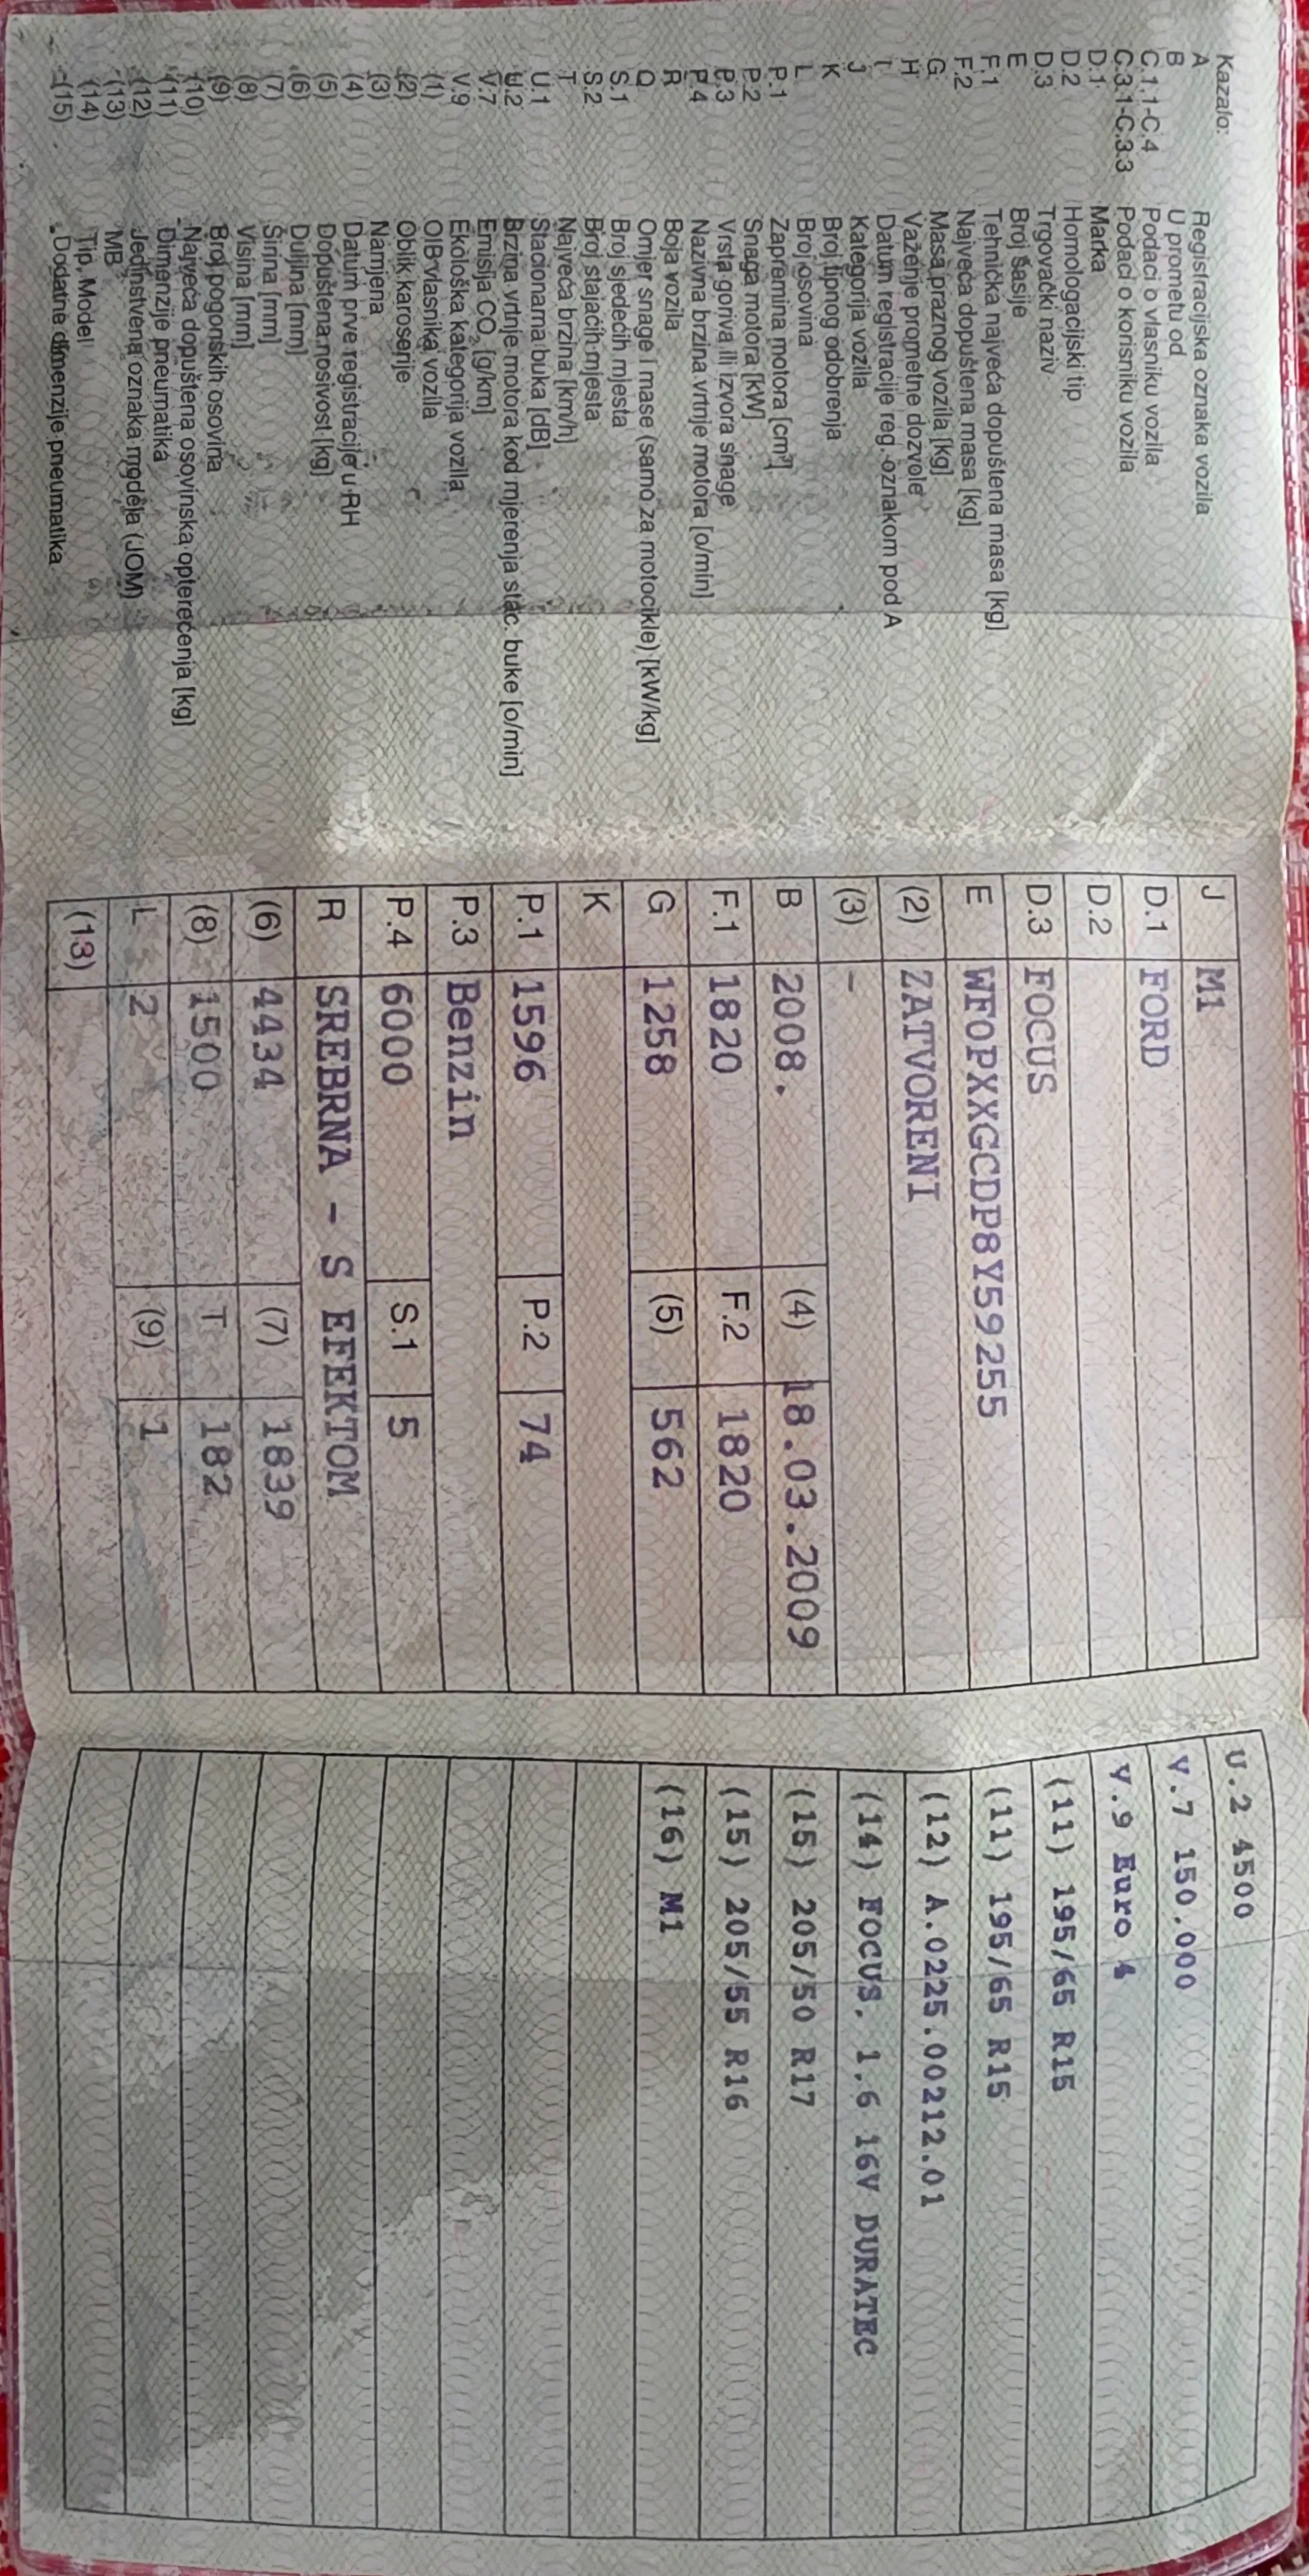 Kazalo:
A Registracijska oznaka vozila
B U prometu od
C.1.1-C.4 Podaci o vlasniku vozila
C.3.1-C.3.3 Podaci o korisniku vozila
D.1 Marka
D.2 Homologacijski tip
D.3 Trgovački naziv
E Broj šasije
F.1 Tehnička najveća dopuštena masa [kg]
F.2 Najveća dopuštena masa [kg]
G Masa praznog vozila [kg]
H Važenje prometne dozvole
I Datum registracije reg. oznakom pod A
J Kategorija vozila
K Broj tipnog odobrenja
L Broj osovina
P.1 Zapremina motora [cm³]
P.2 Snaga motora [kW]
P.3 Vrsta goriva ili izvora snage
P.4 Nazivna brzina vrtnje motora [o/min]
R Boja vozila
Q Omjer snage i mase (samo za motocikle) [kW/kg]
S.1 Broj sjedećih mjesta
S.2 Broj stajaćih mjesta
T Najveća brzina [km/h]
U.1 Stacionarna buka [dB]
U.2 Brzina vrtnje motora kod mjerenja stac. buke [o/min]
V.7 Emisija CO₂ [g/km]
V.9 Ekološka kategorija vozila
(1) OIB vlasnika vozila
(2) Oblik karoserije
(3) Namjena
(4) Datum prve registracije u RH
(5) Dopuštena nosivost [kg]
(6) Duljina [mm]
(7) Širina [mm]
(8) Visina [mm]
(9) Broj pogonskih osovina
(10) Najveća dopuštena osovinska opterećenja [kg]
(11) Dimenzije pneumatika
(12) Jedinstvena oznaka modela (JOM)
(13) MB
(14) Tip, Model
(15) Dodatne dimenzije pneumatika
J M1
D.1 FORD
D.2
D.3 FOCUS
E WF0PXXGCDP8Y59255
(2) ZATVORENI
(3) -
B 2008. (4) 18.03.2009
F.1 1820 F.2 1820
G 1258 (5) 562
K
P.1 1596 P.2 74
P.3 Benzin
P.4 6000 S.1 5
R SREBRNA - S EFEKTOM
(6) 4434 (7) 1839
(8) 1500 T 182
L 2 (9) 1
(13)
U.2 4500
V.7 150,000
V.9 Euro 4
(11) 195/65 R15
(11) 195/65 R15
(12) A.0225.00212.01
(14) FOCUS, 1.6 16V DURATEC
(15) 205/50 R17
(15) 205/55 R16
(16) M1